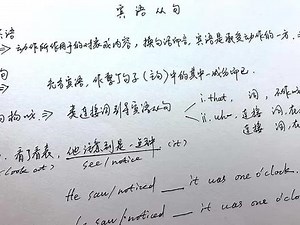 宾语从句
宾语
⇒ 动作所作用的对象或内容, 换句话即谓, 宾语是承受动作的一方.
句
⇒ 充当宾语, 作整个句子(主句)中的其中一成份即已.
构成 ⇒ 要连接词引导宾语从句
i. that, 词, 不作成
ii. wh- 连接词, 在
连接词, 在
看了看表, 他注意到是一点钟. (it)
(look at) see/notice
He saw/noticed ___ it was one o'clock.
saw/noticed ___ it was one o'cloc